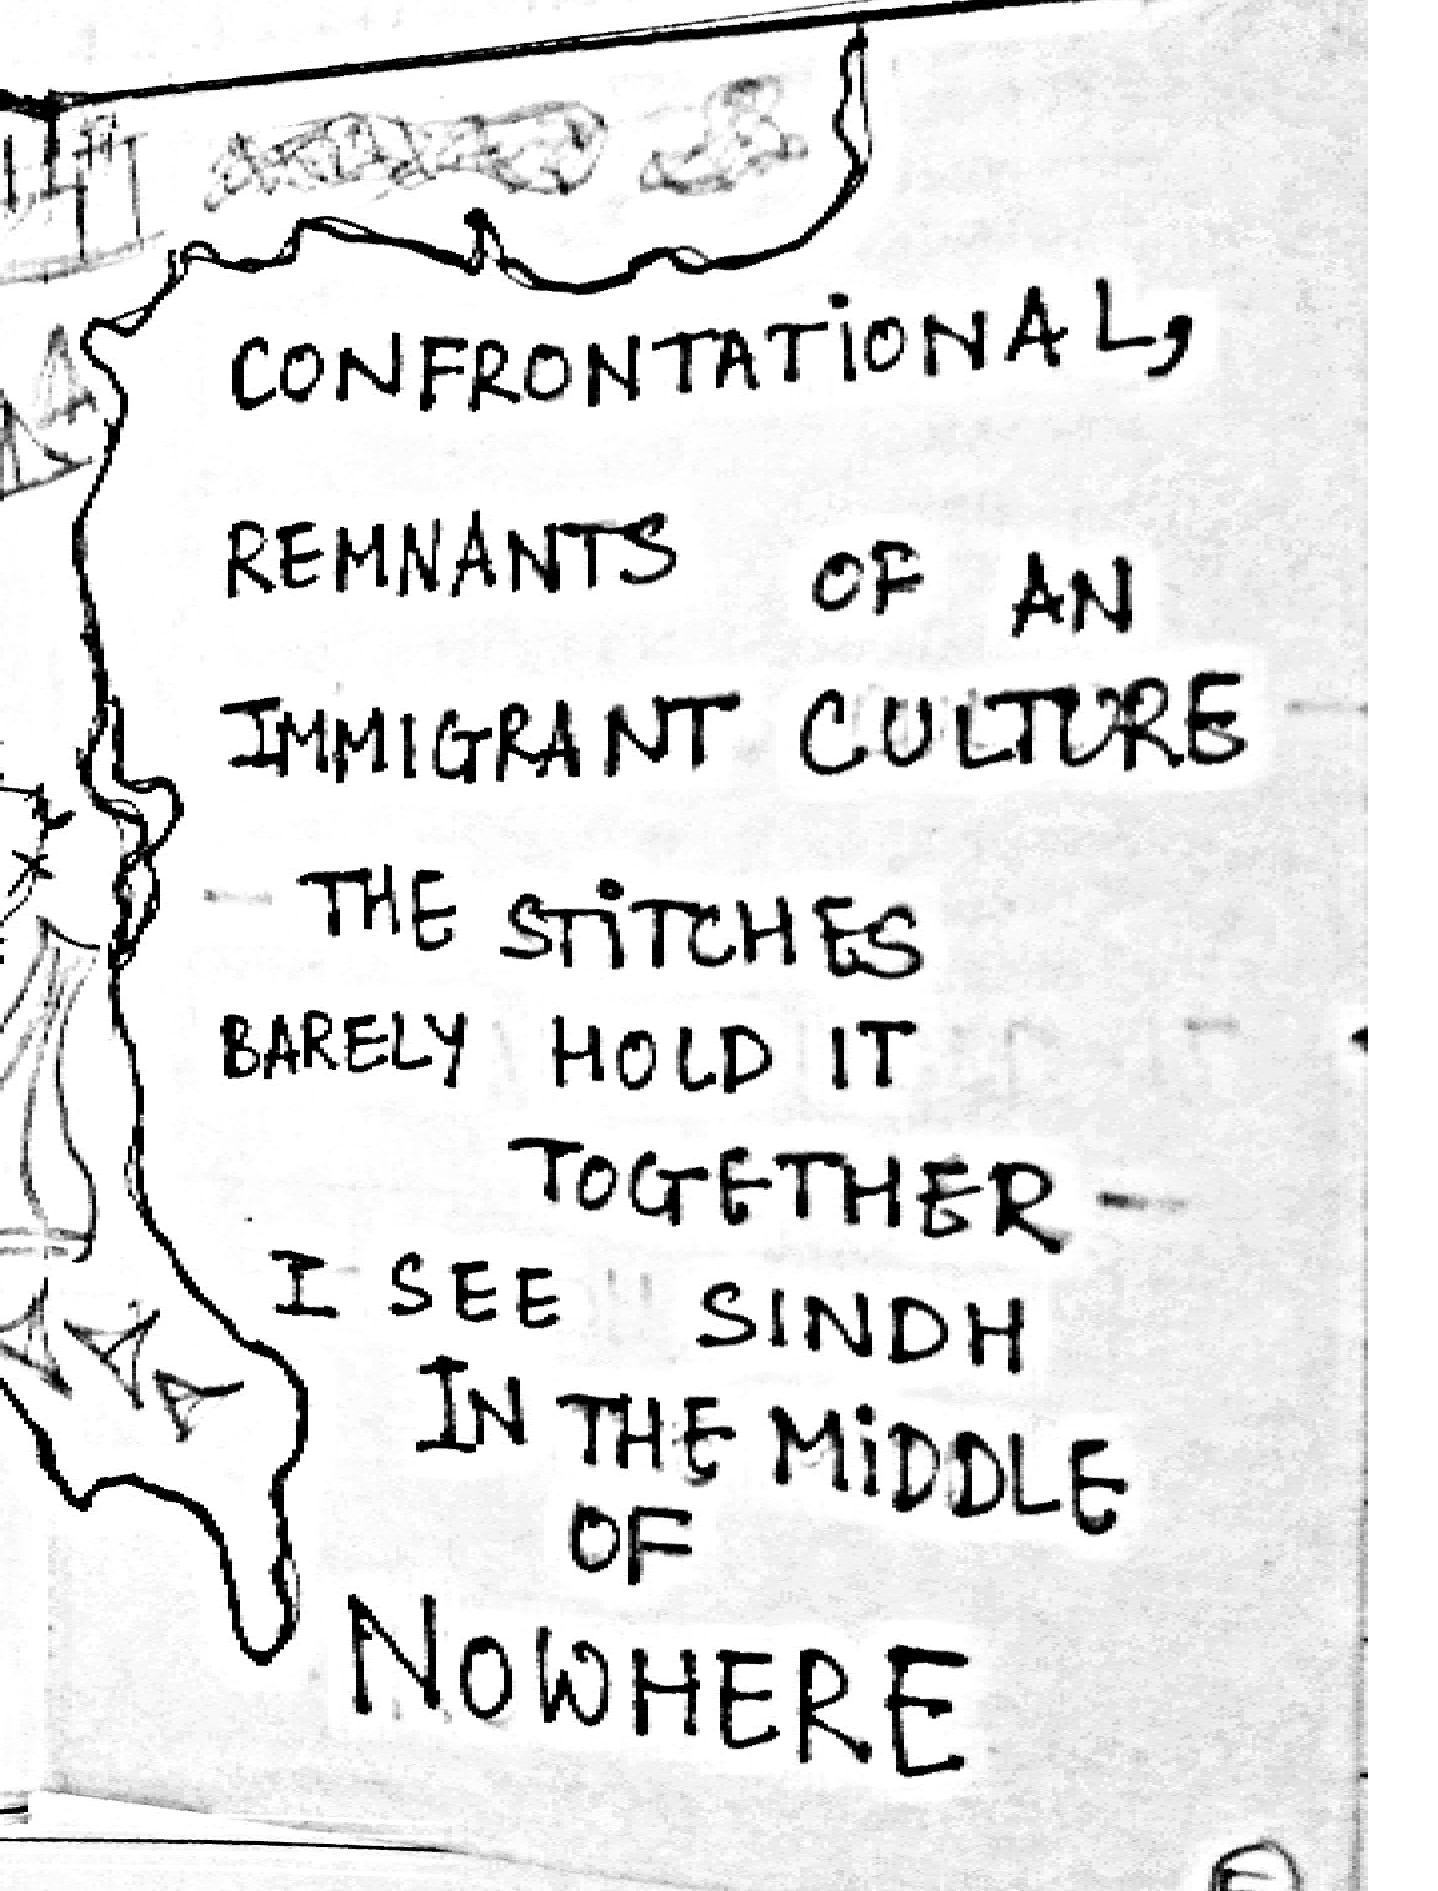 CONFRONTATIONAL,
REMNANTS OF AN
IMMIGRANT CULTURE
THE STITCHES
BARELY HOLD IT
TOGETHER -
I SEE SINDH
IN THE MIDDLE
OF
NOWHERE